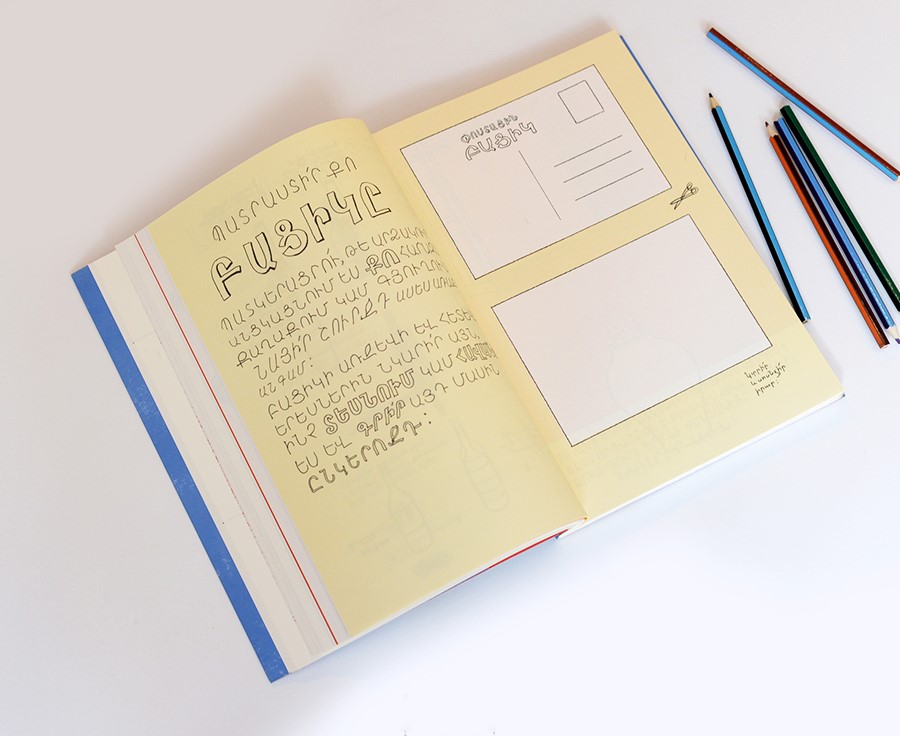 ՊԱՏՐԱՍՏԻ՛Ր ՔՈ
ԲԱՑԻԿԸ
ՊԱՏԿԵՐԱՑՐՈՒ, ԹԵ ԱՐՁԱԿՈՒ
ԱՆՑԿԱՑՆՈՒՄ ԵՍ ՔՈ
ՔԱՂԱՔՈՒՄ ԿԱՄ ԳՅՈՒՂՈՒ
ՆԱՅԻ՛Ր ՇՈՒՐՋԴ ԱՍԵՍ ԱՌԱՋ
ԱՆԳԱՄ:
ԲԱՑԻԿԻ ԱՌՋԵՎԻ ԵՎ ՀԵՏԵՎ
ԵՐԵՍՆԵՐԻՆ ՆԿԱՐԻ՛Ր ԱՅՆ
ԻՆՉ ՏԵՍՆՈՒՄ ԿԱՄ
ԵՍ ԵՎ ԳՐԻ՛Ր ԱՅԴ ՄԱՍԻՆ
ԸՆԿԵՐՈՋԴ:
ՓՈՍՏԱՅԻՆ
ԲԱՑԻԿ
Կտրի՛ր
և սոսնձի՛ր
իրար: